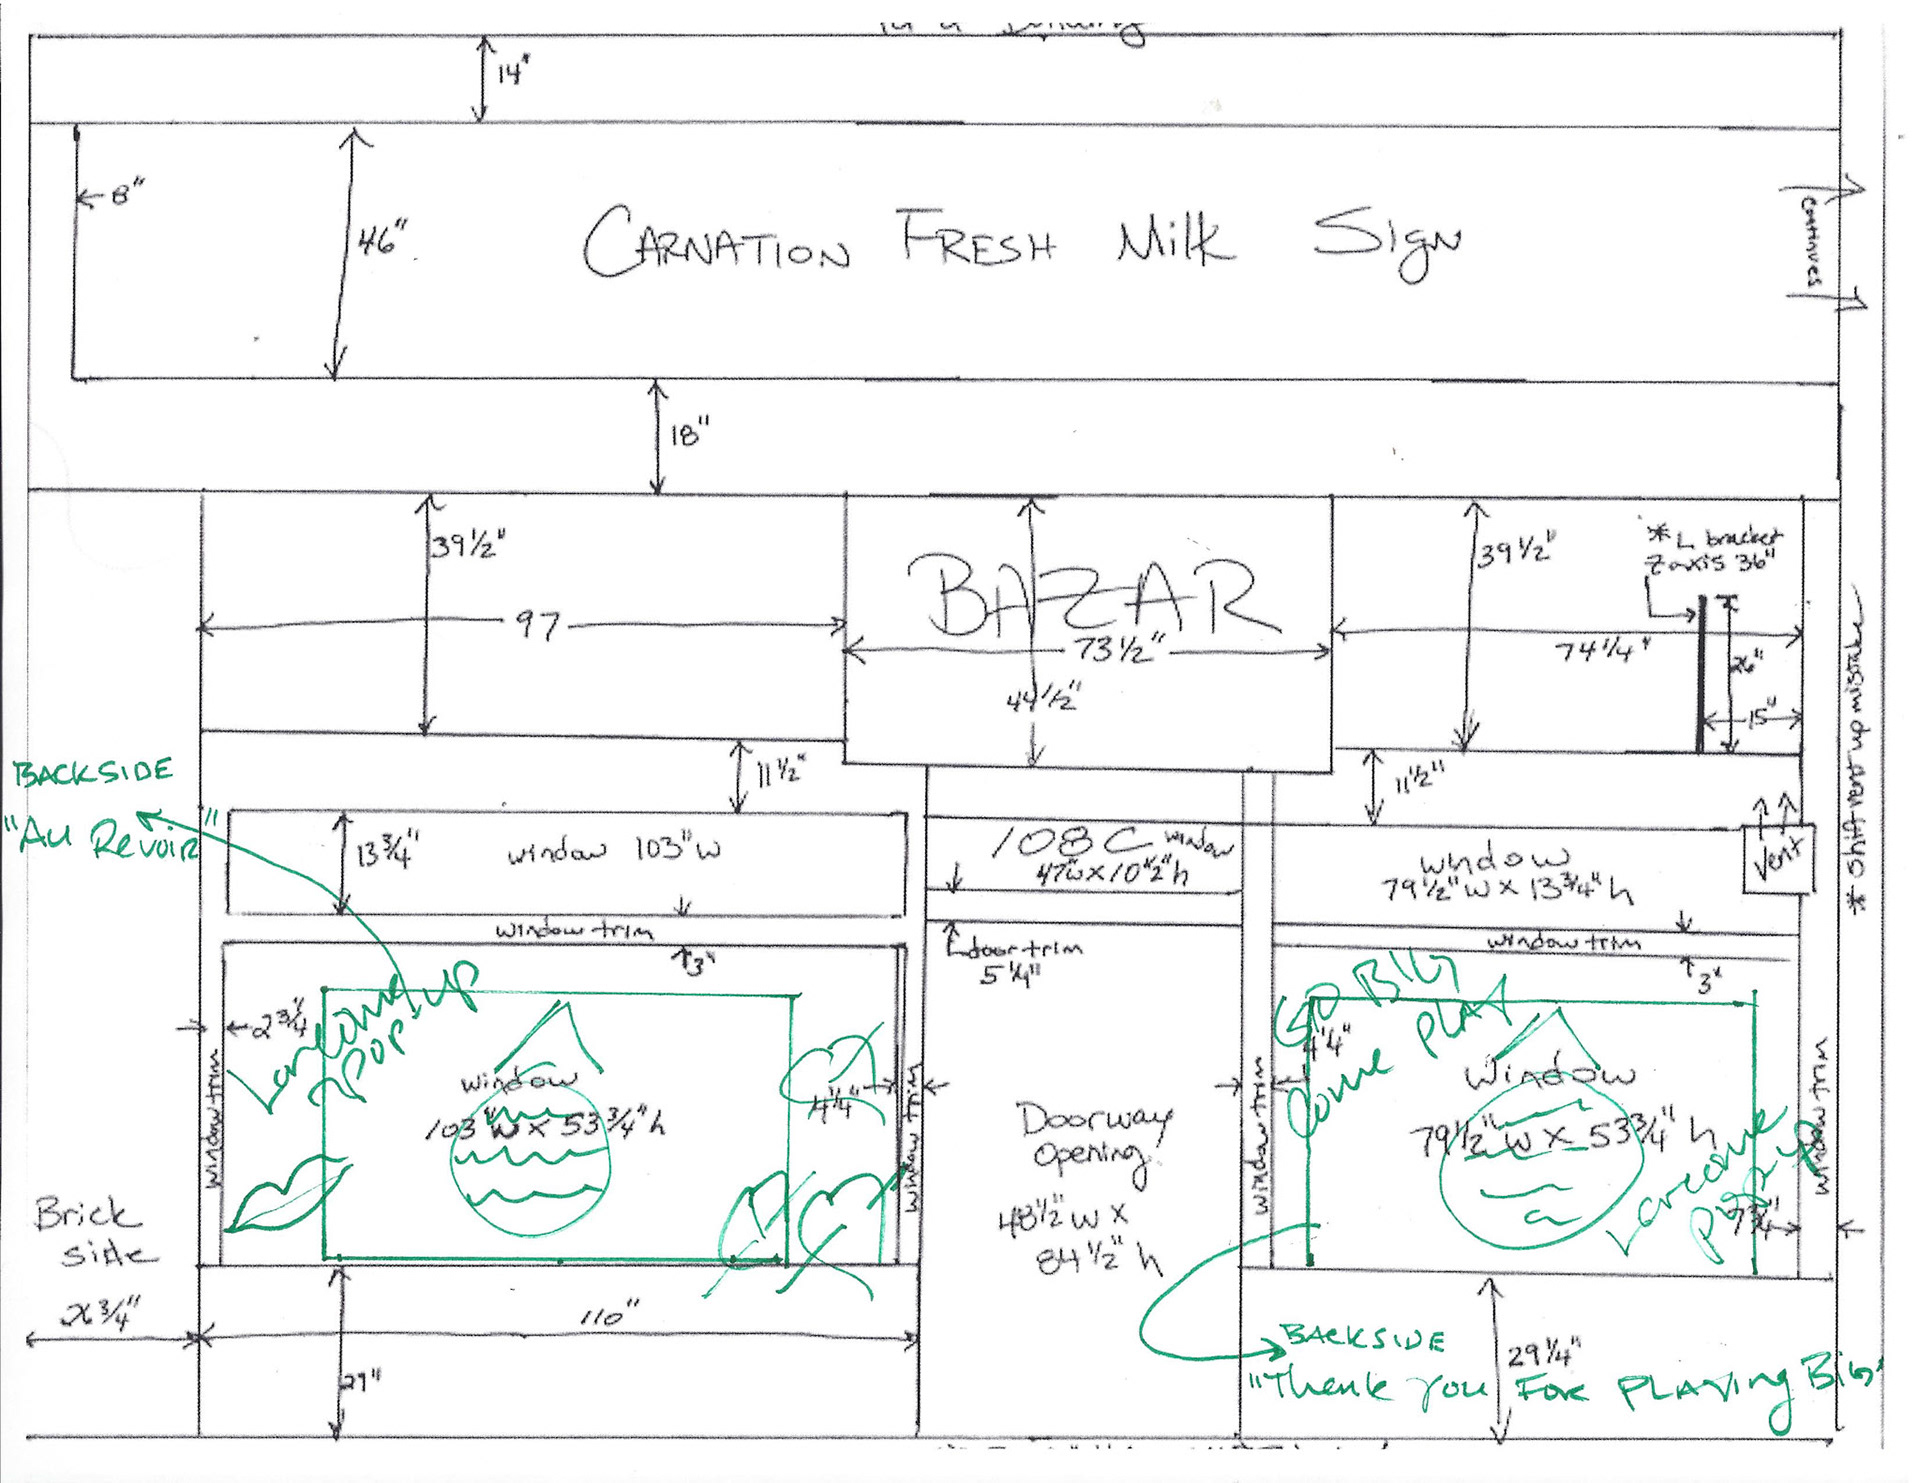 14"
8"
46"
CARNATION FRESH Milk Sign
continues
18"
39 1/2"
97
BAZAR
73 1/2"
44 1/2"
39 1/2"
* L bracket
Z axis 36"
74 1/4"
26"
15"
* Shift vent up mistake
BACKSIDE
"Au Revoir"
11 1/2"
11 1/2"
13 3/4"
window 103" W
108 C window
47" W X 10 1/2" h
window
79 1/2" W X 13 3/4" h
Vent
window trim
3"
door trim
5 1/4"
window trim
3"
2 3/4
Lancome
POP-UP
window trim
window
103" W X 53 3/4" h
4 1/4"
window trim
Doorway
opening
48 1/2" W X
84 1/2" h
GO BIG
Come PLAY
4 1/4"
window trim
Window
79 1/2" W X 53 3/4" h
Lancome
POP-UP
window trim
Brick
side
26 3/4"
110"
29"
BACKSIDE
"Thank you FOR PLAYING BIG"
29 1/4"